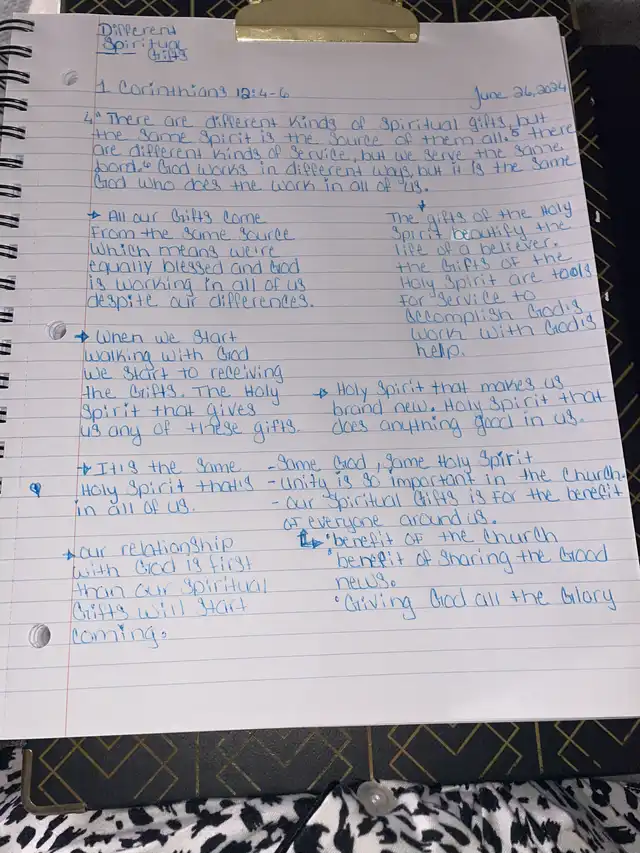 Different
Spiritual
Gifts
1 Corinthians 12:4-6
June 26, 2024
4" There are different kinds of spiritual gifts, but
the same spirit is the source of them all. 5 there
are different kinds of service, but we serve the same
Lord. 6 God works in different ways, but it is the same
God who does the work in all of us.
→ All our Gifts come
From the same source
which means we're
equally blessed and God
is working in all of us
despite our differences.
The gifts of the Holy
Spirit beautify the
life of a believer.
the Gifts of the
Holy Spirit are tools
for service to
accomplish God's
work with God's
help.
→ When we start
walking with God
we start to receiving
the Gifts. The Holy
Spirit that gives
us any of these gifts.
→ Holy Spirit that makes us
brand new. Holy Spirit that
does anything good in us.
→ It is the same
Holy Spirit that is
in all of us.
- Same God, Same Holy Spirit
- Unity is so important in the Church.
- Our Spiritual Gifts is for the benefit
of everyone around us.
→ Our relationship
with God is first
than our spiritual
Gifts will start
coming.
↳ • benefit of the Church
• benefit of sharing the Good
news.
• Giving God all the Glory